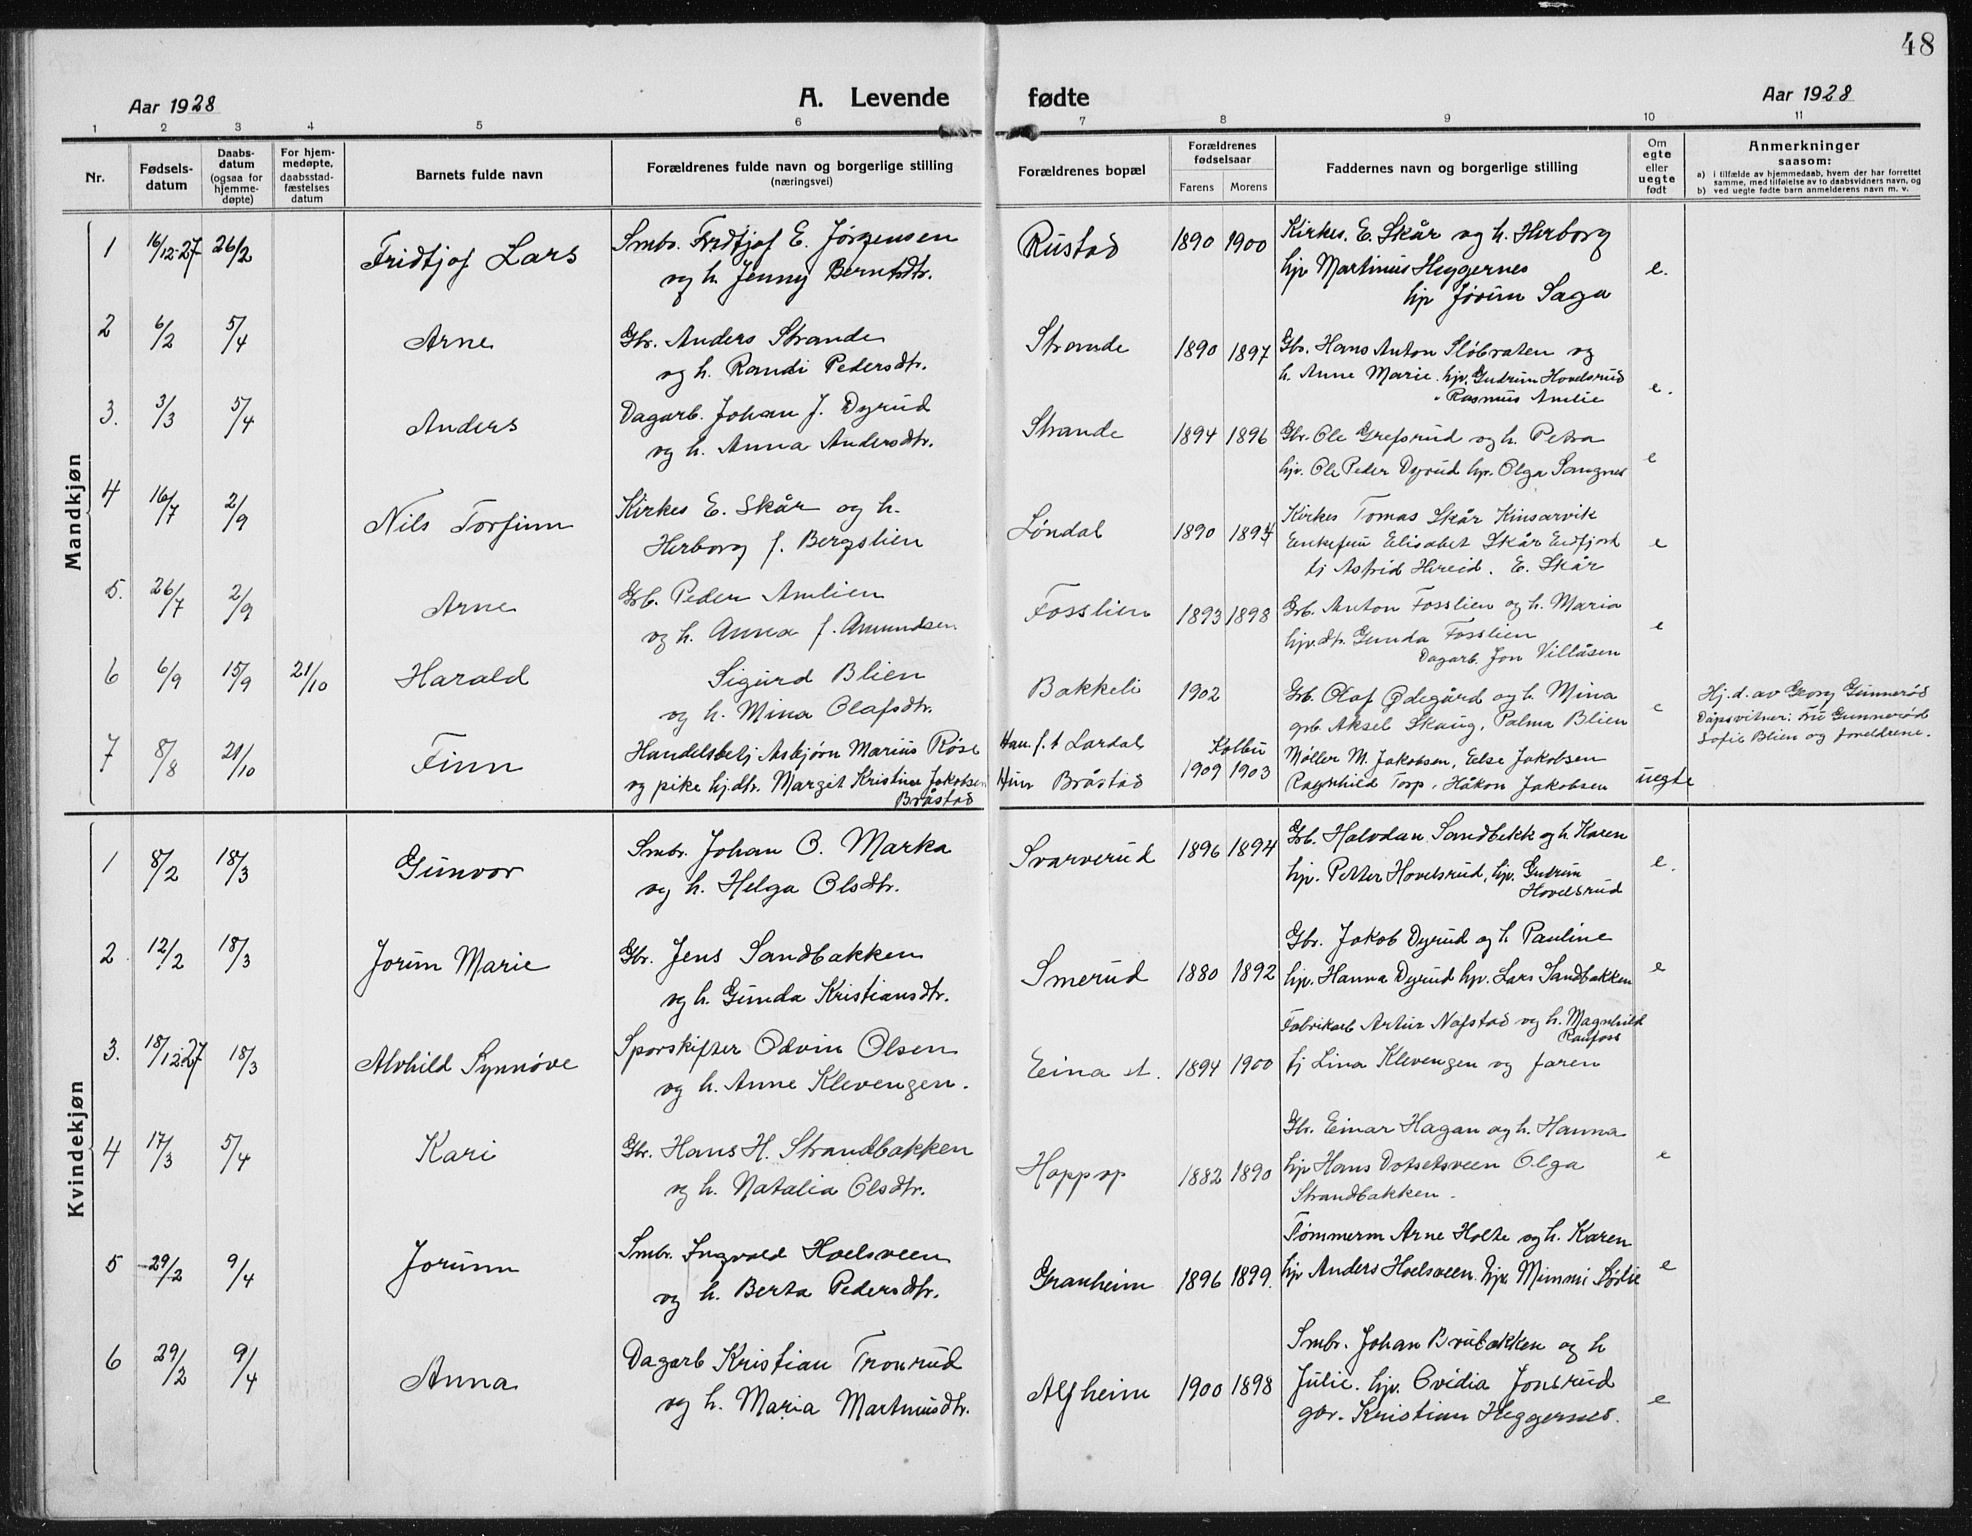 48
Aar 1928
A. Levende fødte
Aar 1928
1 2 3 4 5 6 7 8 9 10 11
Nr.
Fødsels-
datum
Daabs-
datum
(ogsaa for
hjemme-
døpte)
For hjem-
medøpte,
daabsstad-
fæstelses
datum
Barnets fulde navn
Forældrenes fulde navn og borgerlige stilling
(næringsvei)
Forældrenes bopæl
Forældrenes
fødselsaar
Farens
Morens
Faddernes navn og borgerlige stilling
Om
egte
eller
uegte
født
Anmerkninger
saasom:
a) i tilfælde av hjemmedaab, hvem der har forrettet
samme, med tilføielse av to daabsvidners navn, og
b) ved uegte fødte barn anmelderens navn m. v.
Mandkjøn
1 16/12-27 26/2 Fridtjof Lars
Smbr. Fridtjof E. Jørgensen
og h. Jenny Berntsdtr.
Rustad 1890 1900
Kirkes. E. Skår og h. Herborg
hjv Martinius Heggernes
hjv Jørun Saga
e.
2 6/2 5/4 Arne
Gbr. Anders Strande
og h. Randi Pedersdtr.
Strande 1890 1897
Gbr. Hans Anton Slåbraten og
h. Anne Marie. hjv. Gudrun Hovelsrud
" Rasmus Amlie
e.
3. 3/3 5/4 Anders
Dagarb. Johan J. Dyrud
og h. Anna Andersdtr.
Strande 1894 1896
Gbr. Ole Grefsrud og h. Petra
hjv. Ole Peder Dyrud hjv. Olga Sangnes
e
4 16/7 2/9 Nils Torfinn
Kirkes E. Skår og h.
Herborg f. Bergslien
Løndal 1890 1894
Kirkes Tomas Skår Kinsarvik
Enkefru Elisabet Skår Eidfjord
fj Astrid Hereid. E. Skår
e
5. 26/7 2/9 Arne
Grb. Peder Amlien
og h. Anna f. Amundsen
Fosslien 1893 1898
Grb. Anton Fosslien og h. Maria
hjv. dtr. Gunda Fosslien
Dagarb. Jon Villåsen
e
6 6/9 15/9 21/10 Harald
Sigurd Blien
og h. Mina Olafsdtr.
Bakkeli 1902
Grb. Olaf Ødegård og h. Mina
grb. Aksel Skaug, Palma Blien
e
Hj. d. av Georg Gunnerød
Dåpsvitner: Fru Gunnerød
Sofie Blien og foreldrene.
7 8/8 21/10 Finn
Handelsbetj Asbjørn Marius Røse
og pike hj.dtr. Margit Kristine Jakobsen
Bråstad
Han f. t Lardal Kolbu
Hun Bråstad 1909 1903
Møller M. Jakobsen, Else Jakobsen
Ragnhild Torp, Håkon Jakobsen
uegte
Kvindekjøn
1 8/2 18/3 Gunvor
Smbr. Johan O. Marka
og h. Helga Olsdtr.
Svarverud 1896 1894
Grb. Halvdan Sandbekk og h. Karen
hjv. Petter Hovelsrud, hjv. Gudrun
Hovelsrud
e.
2. 12/2 18/3 Jorun Marie
Gbr. Jens Sandbakken
og h. Gunda Kristiansdtr.
Smerud 1880 1892
Gbr. Jakob Dyrud og h. Pauline
hjv. Hanna Dyrud hjv. Lars Sandbakken
e
3. 18/12-27 18/3 Alvhild Synnøve
Sporskifter Odvin Olsen
og h. Anne Klevengen.
Eina st. 1894 1900
Fabrikarb Artur Nafstad og h. Magnhild
Raufoss
fj Lina Klevengen og faren
4 17/3 5/4 Kari
Gbr. Hans H. Strandbakken
og h. Natalia Olsdtr.
Hoppop 1882 1890
Gbr. Einar Hagan og h. Hanna
hjv Hans Dotsetsveen Olga
Strandbakken.
e
5 29/2 9/4 Jorunn
Smbr. Ingvald Hoelsveen
og h. Berta Pedersdtr.
Granheim 1896 1899.
Tømmerm Arne Holte og h. Karen
hjv Anders Hoelsveen. hjv. Mimmi Bødie
e
6 29/2 9/4 Anna
Dagarb Kristian Tronrud
og h. Maria Martinusdtr.
Alfheim 1900 1898
Smbr. Johan Brubakken og h
Julie. hjv. Ovidia Jonsrud
gbr. Kristian Heggernes.
e